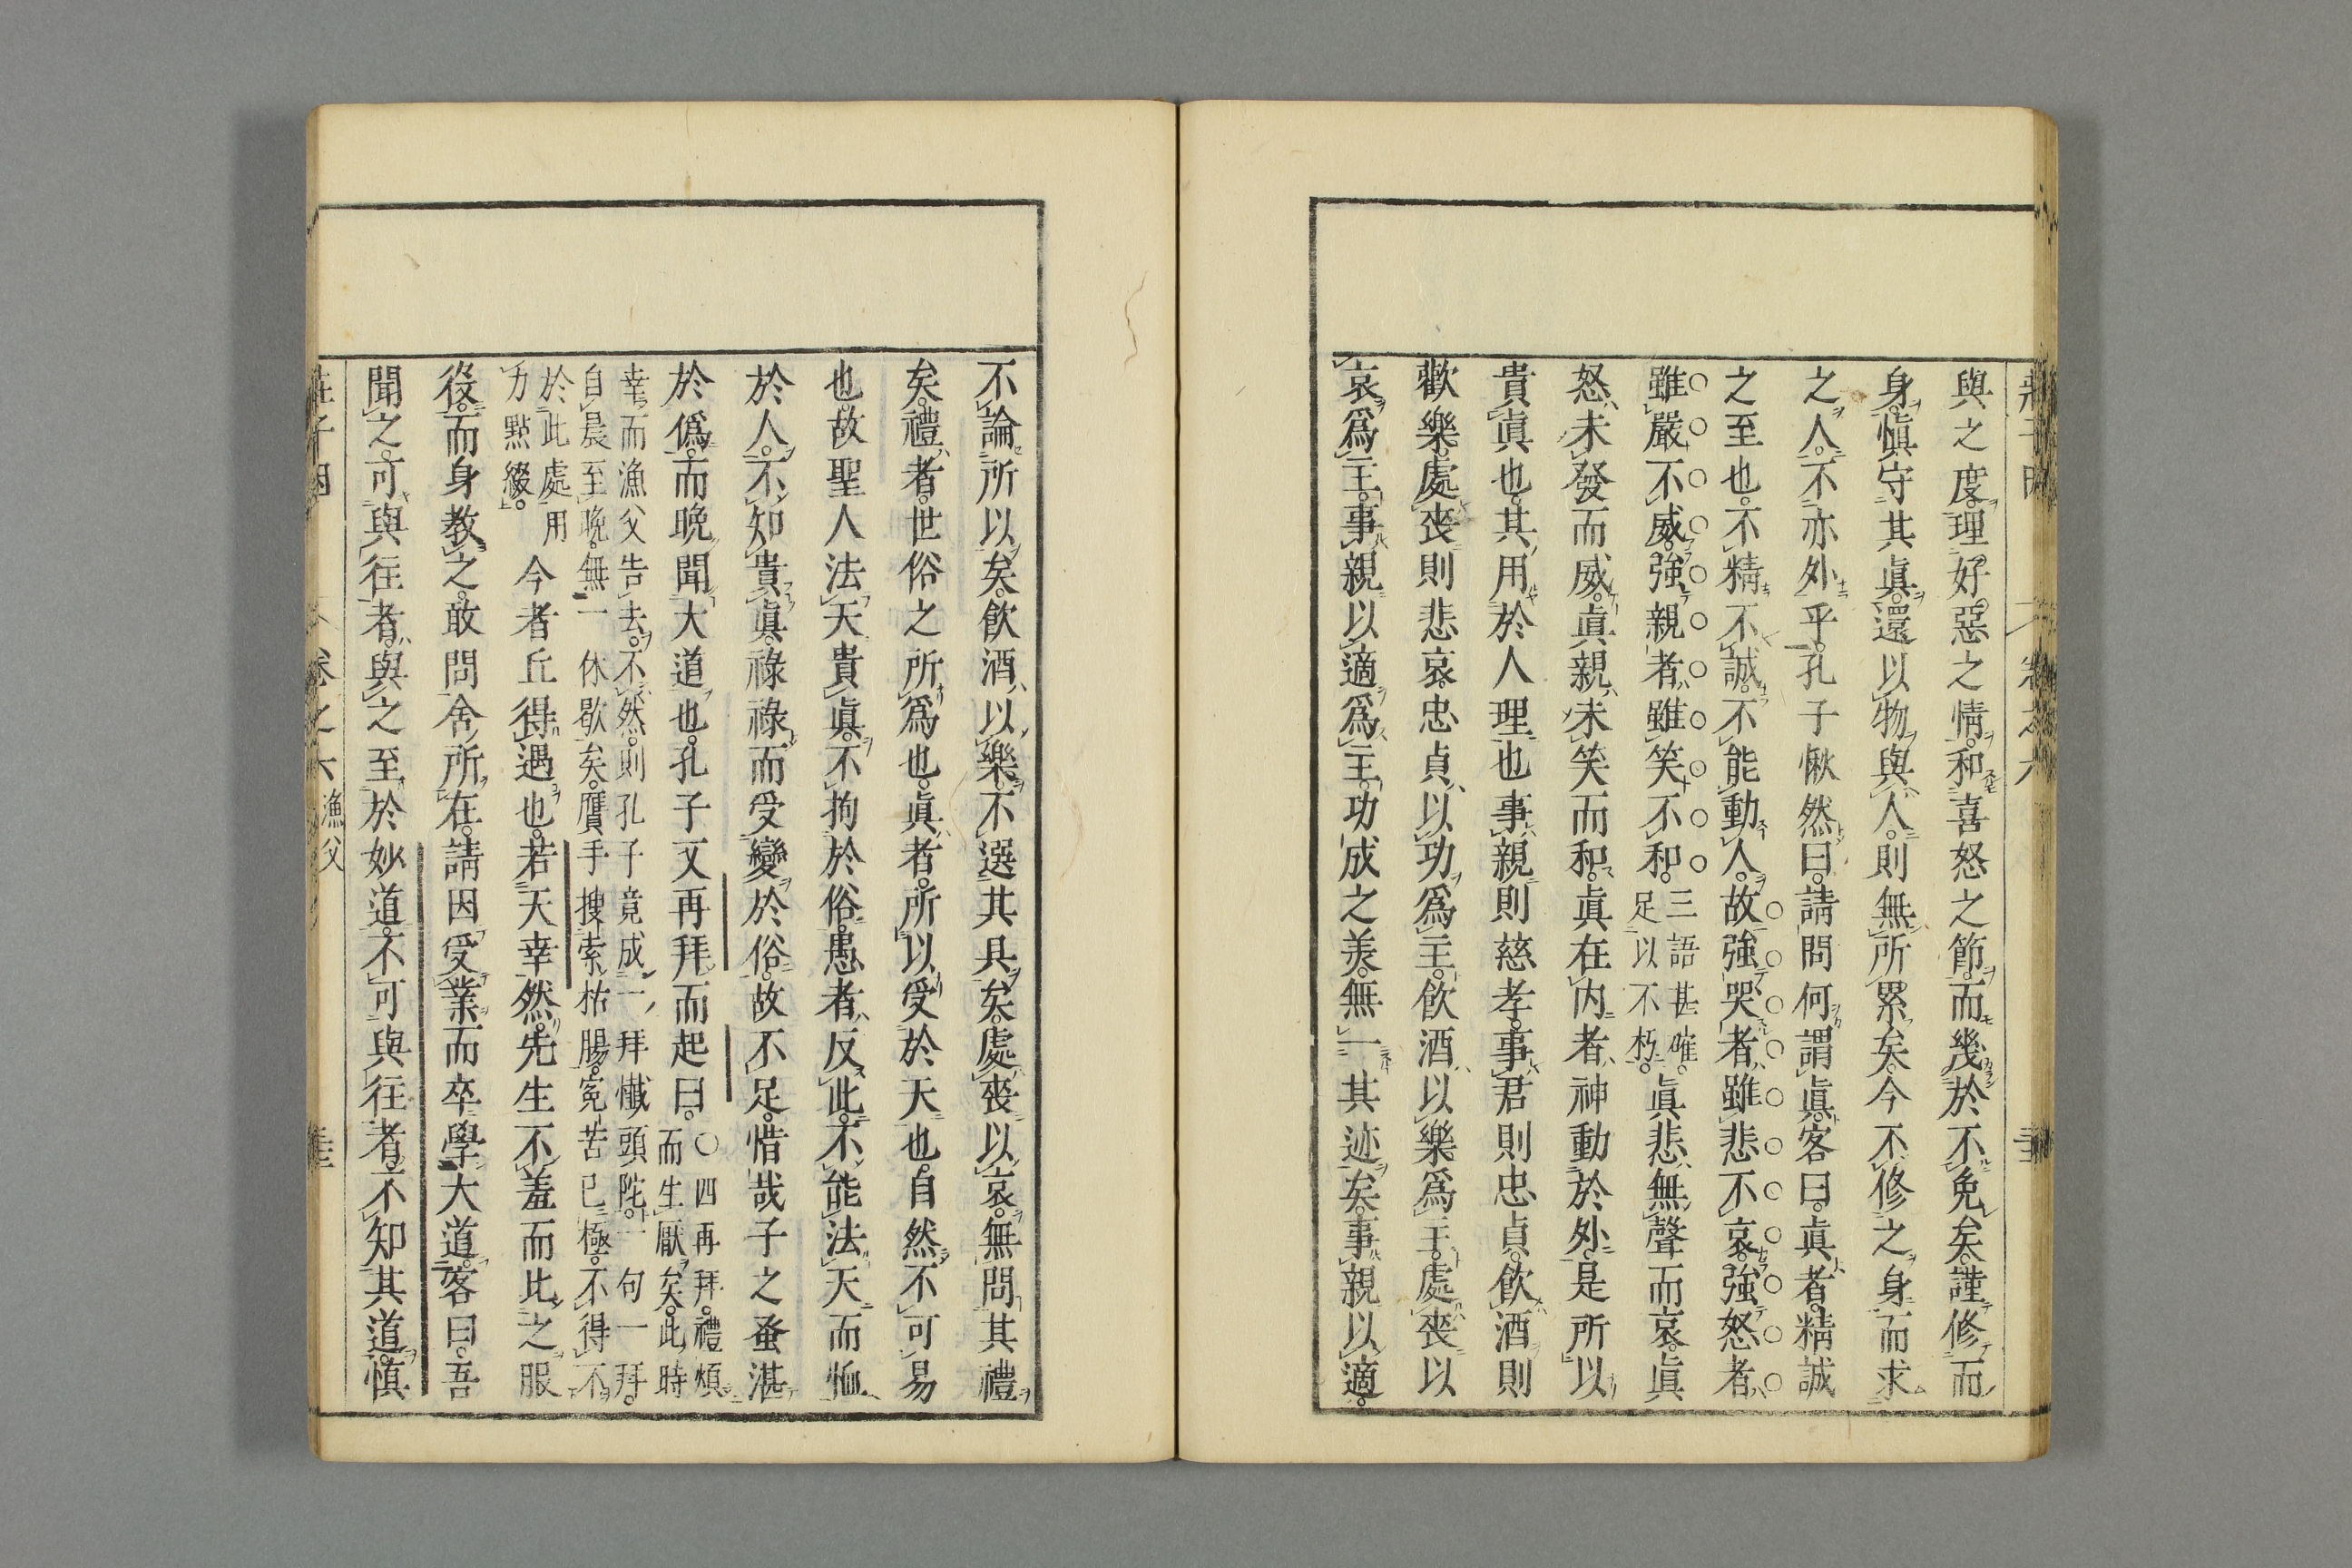 與之度。理好惡之情。和喜怒之節。而幾於不免矣。謹修而
身。愼守其眞。還以物與人。則無所累矣。今不修之身而求
之人。不亦外乎。孔子愀然曰。請問何謂眞。客曰。眞者。精誠
之至也。不精不誠。不能動人。故強哭者。雖悲不哀。強怒者。
雖嚴不威。強親者。雖笑不和。
三語甚確。
足以不朽。
眞悲無聲而哀。眞
怒未發而威。眞親未笑而和。眞在内者。神動於外。是所以
貴眞也。其用於人理也。事親則慈孝。事君則忠貞。飲酒則
歡樂。處喪則悲哀。忠貞以功爲主。飲酒以樂爲主。處喪以
哀爲主。事親以適爲主。功成之美。無一其迹矣。事親以適。
不論所以矣。飲酒以樂。不選其具矣。處喪以哀。無問其禮
矣。禮者。世俗之所爲也。眞者。所以受於天也。自然不可易
也。故聖人法天貴眞。不拘於俗。愚者反此。不能法天而恤
於人。不知貴眞。祿祿而受變於俗。故不足。惜哉子之蚤湛
於僞。而晚聞大道也。孔子又再拜而起曰。
○四再拜。禮煩
而生厭矣。此時
幸而漁父告去。不然。則孔子竟成一拜懺頭陀。一句一拜。
自晨至晚。無一休歇矣。贋手搜索枯腸。寃苦已極。不得不
於此處用
力點綴。
今者丘得遇也。若天幸然。先生不羞而比之服
役。而身教之。敢問舍所在。請因受業而卒學大道。客曰。吾
聞之。可與往者。與之至於妙道。不可與往者。不知其道。愼
莊子因 卷之六 漁父